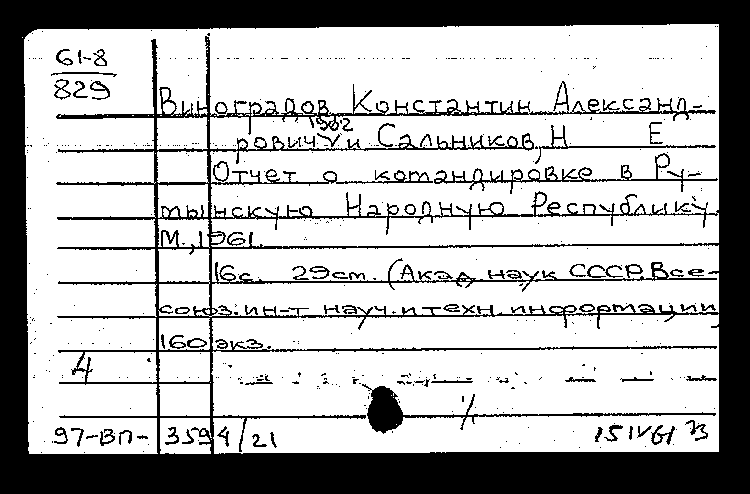 61-8
829
Виноградов, Константин Александ-
1902
рович и Сальников, Н Е
Отчет о командировке в Ру-
мынскую Народную Республику.
М., 1961.
16с. 29см. (Акад. наук СССР. Все-
союз. ин-т науч. и техн. информации)
160 экз.
4
97-ВП- 3594/21
15 IV 61